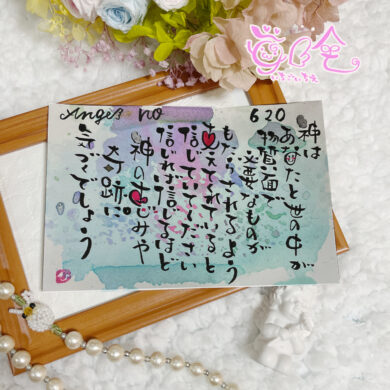 Angel no 620
神は
あなたと世の中が
物質面で
必要なものが
もたらされるよう
支えてくれていると
信じていてください
信じれば信じるほど
神の恵みや
奇跡に
気づくでしょう